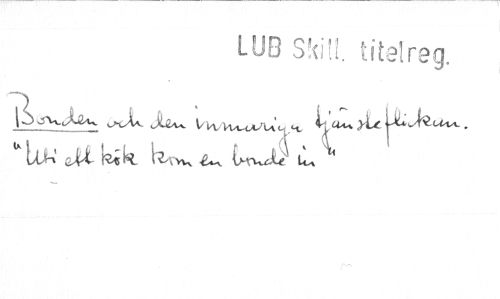 LUB Skill. titelreg.
Bonden och den inmuriga tjänsteflickan.
"Uti ett kök kom en bonde in"